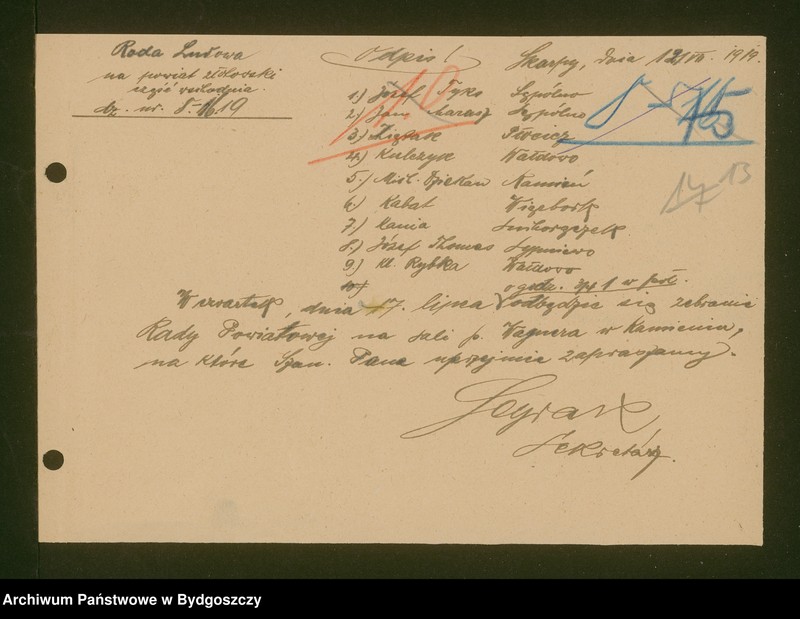 Rada Ludowa
na powiat złotowski
część wschodnia.
dz. nr. 8.16/19
Odpis!
Skarpy, dnia 12/VII. 1919.
1.) Józef Tyko Sępólno
2.) Jan Marasz Sępólno
3.) Piwnicz
4.) Kulczyk Wałdowo
5.) Miśl. Dziekan Kamień
6.) Kabat Więcbork
7.) Kania
8.) Józef Thomas Sypniewo
9.) Kl. Rybka Wałdowo
10
o godz. 1 w poł.
W czwartek, dnia 17. lipca odbędzie się zebranie
Rady Powiatowej na sali p. Wagnera w Kamieniu,
na które Szan. Pana uprzejmie zapraszamy.
Sekretarz.
14 13
Archiwum Państwowe w Bydgoszczy